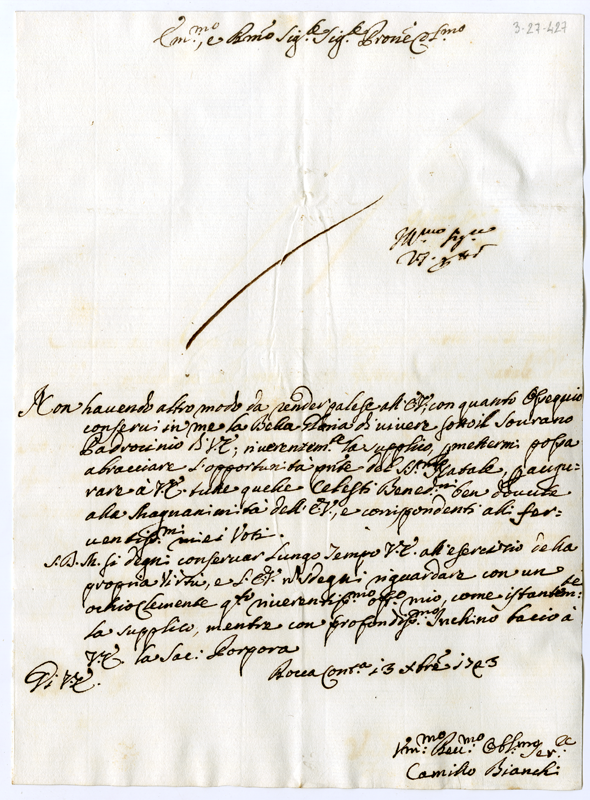 3-27-427
Em.mo, e Rmo Sig.re Sig.re Prone Col.mo
Non havendo altro modo da render palese all'E.V., con quanto Ossequio
conservi in me la bella gloria di vivere sotto il Sourano
Padrocinio di V.E.; riverentem.te la supplico, permettermi possa
abracciare l'opportunità pnte del SS.mo Natale, p augu-
rare à V.E. tutte quelle Celesti Bened.ni ben dovute
alla Magnanimità dell'E.V., e corrispondenti alli fer-
ventiss.mi miei Voti.
S.D.M. si degni conservar lungo tempo V.E. all'esercitio della
propria Virtù, e l'E.V. si degni riguardare con un
occhio Clemente q.to riverentiss.mo off.o mio, come istantem.te
la supplico, mentre con profondiss.mo Inchino bacio à
V.E. la Sac: Porpora
Di V.E.
Rocca Contra 13 Xbre 1743
Um.mo Dev.mo Obl.mo Ser.e
Camillo Bianchi